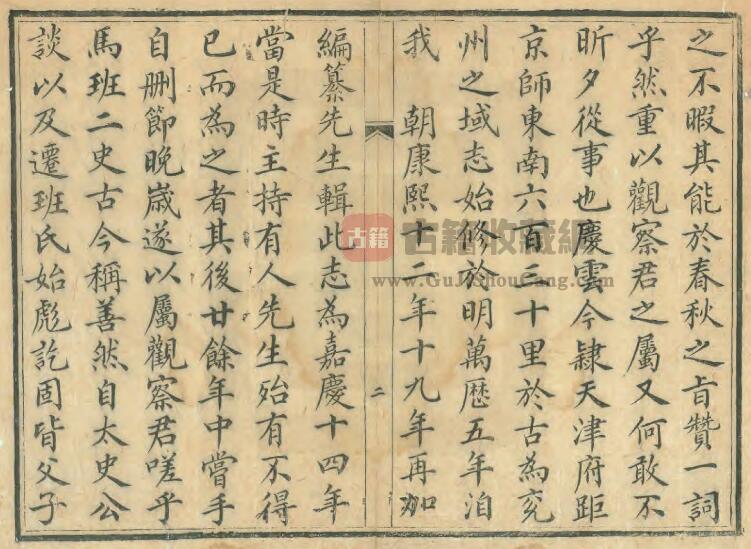 之不暇其能於春秋之旨贊一詞
乎然重以觀察君之屬又何敢不
昕夕從事也慶雲今隸天津府距
京師東南六百三十里於古為兗
州之域志始修於明萬歷五年洎
我 朝康熙十二年十九年再加
二
編纂先生輯此志為嘉慶十四年
當是時主持有人先生殆有不得
已而為之者其後廿餘年中嘗手
自刪節晚嵗遂以屬觀察君嗟乎
馬班二史古今稱善然自太史公
談以及遷班氏始彪訖固皆父子
古籍 古籍收藏網
www.GuJiShouCang.com